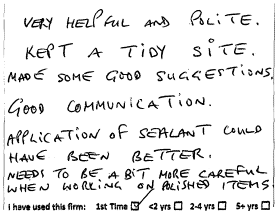 VERY HELPFUL AND POLITE.
KEPT A TIDY SITE.
MADE SOME GOOD SUGGESTIONS.
GOOD COMMUNICATION.
APPLICATION OF SEALANT COULD
HAVE BEEN BETTER.
NEEDS TO BE A BIT MORE CAREFUL
WHEN WORKING ON POLISHED ITEMS.
I have used this firm: 1st Time ☑ <2 yrs ☐ 2-4 yrs ☐ 5+ yrs ☐